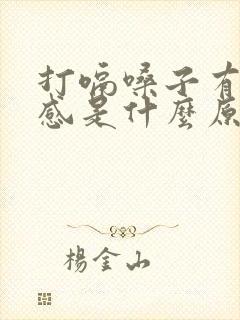 打嗝嗓子有
感是什麼原
楊金山